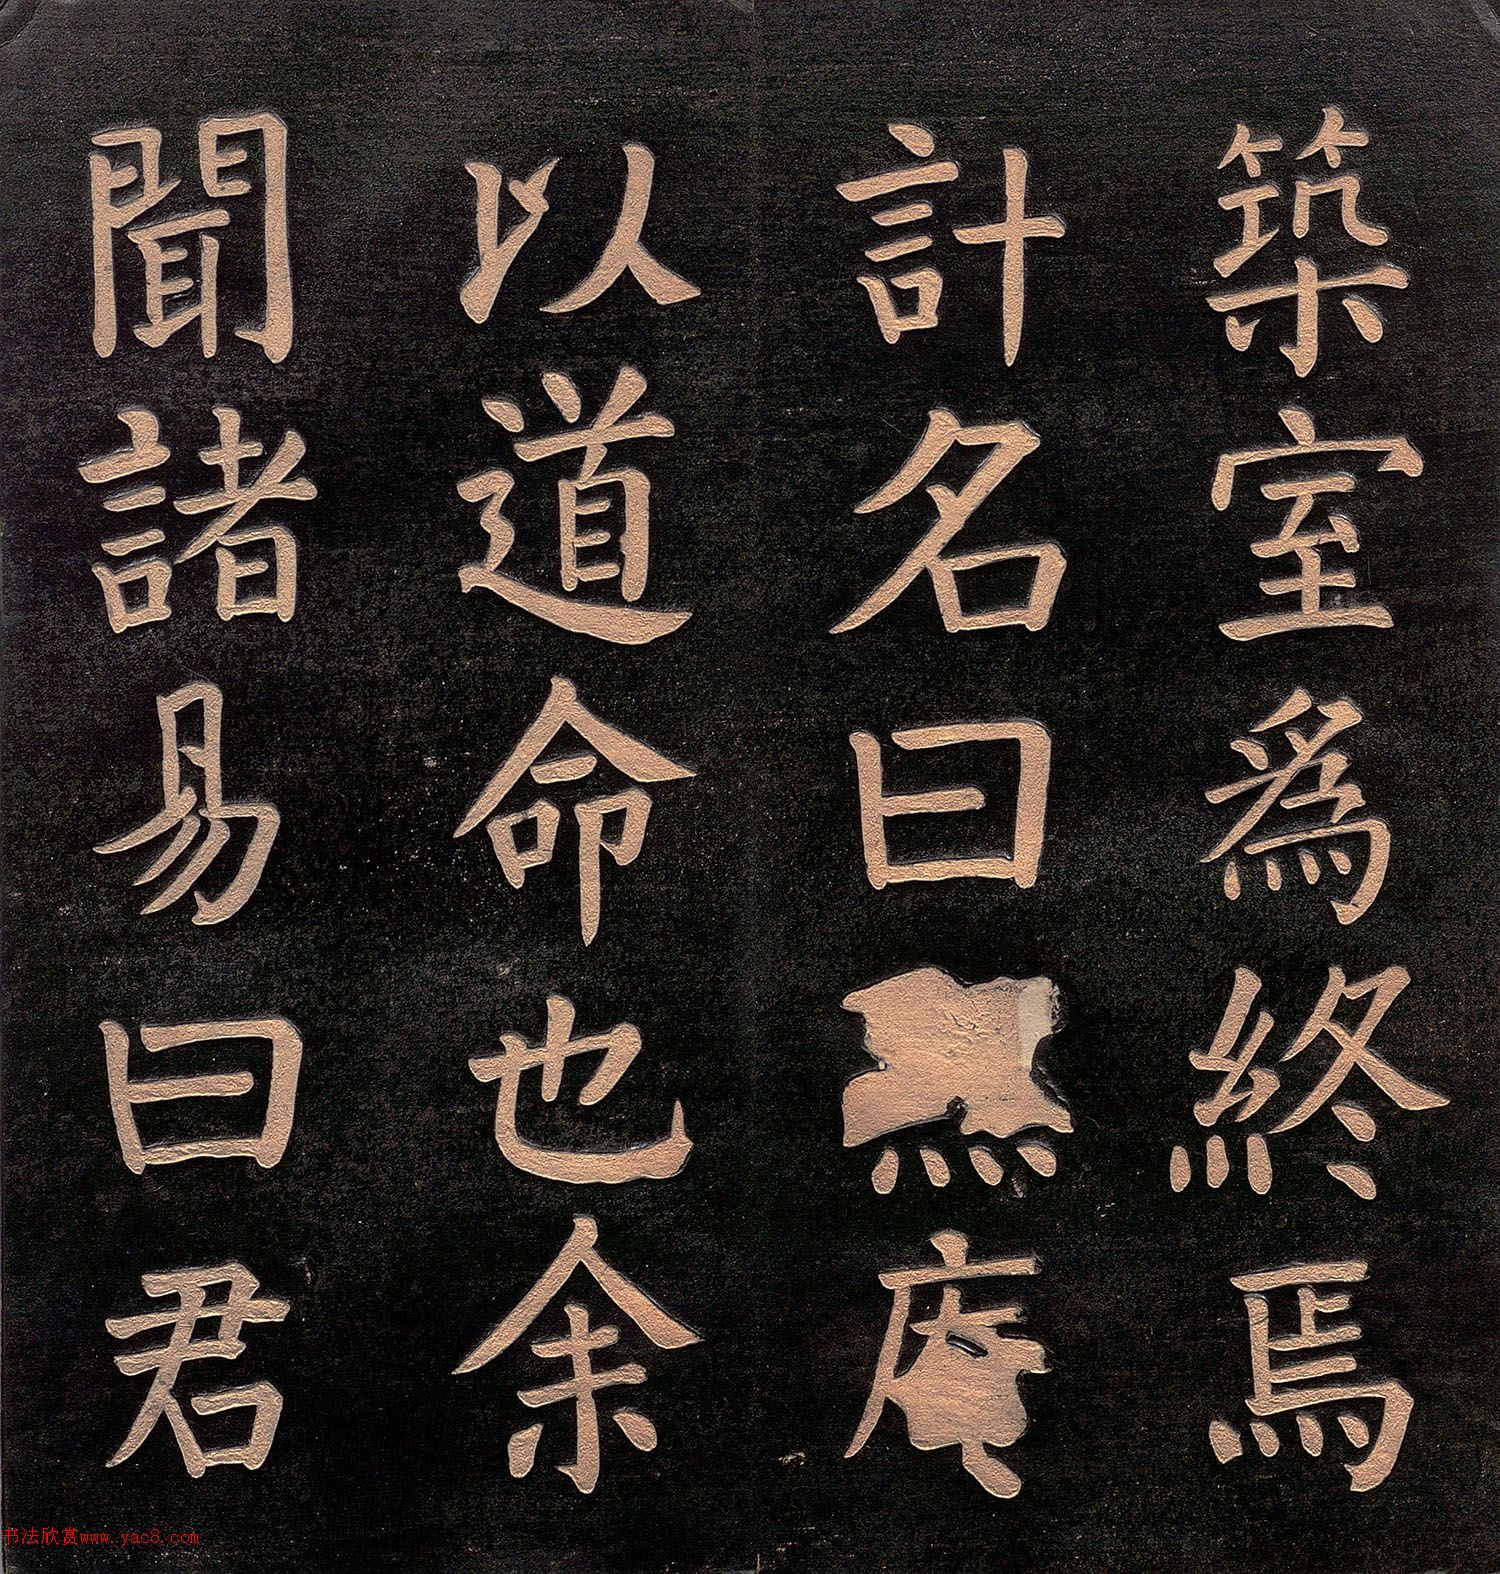 築室為終焉
計名曰庵
以道命也余
聞諸易曰君
书法欣赏www.yac8.com